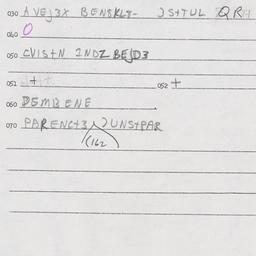 030 AVEJ3X BENSKLT- JSTTUL QR
040 O
050 CVISTN INDZ BEJD3
051 + 052 +
060 DEMBENE
070 PARENCT3 JUNSTPAR
(162